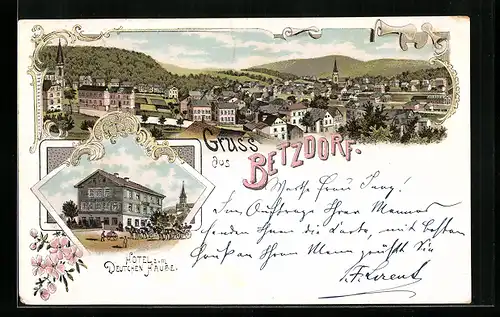 Gruss
aus
BETZDORF.
HÔTEL z. M.
DEUTSCHEN HAUSE.
Werthe Frau Jung!
Im Auftrage Ihres Mannes
senden Ihnen die Karte, mit besten
Gruß an Ihren Mann grüßt Sie
F. Lorent